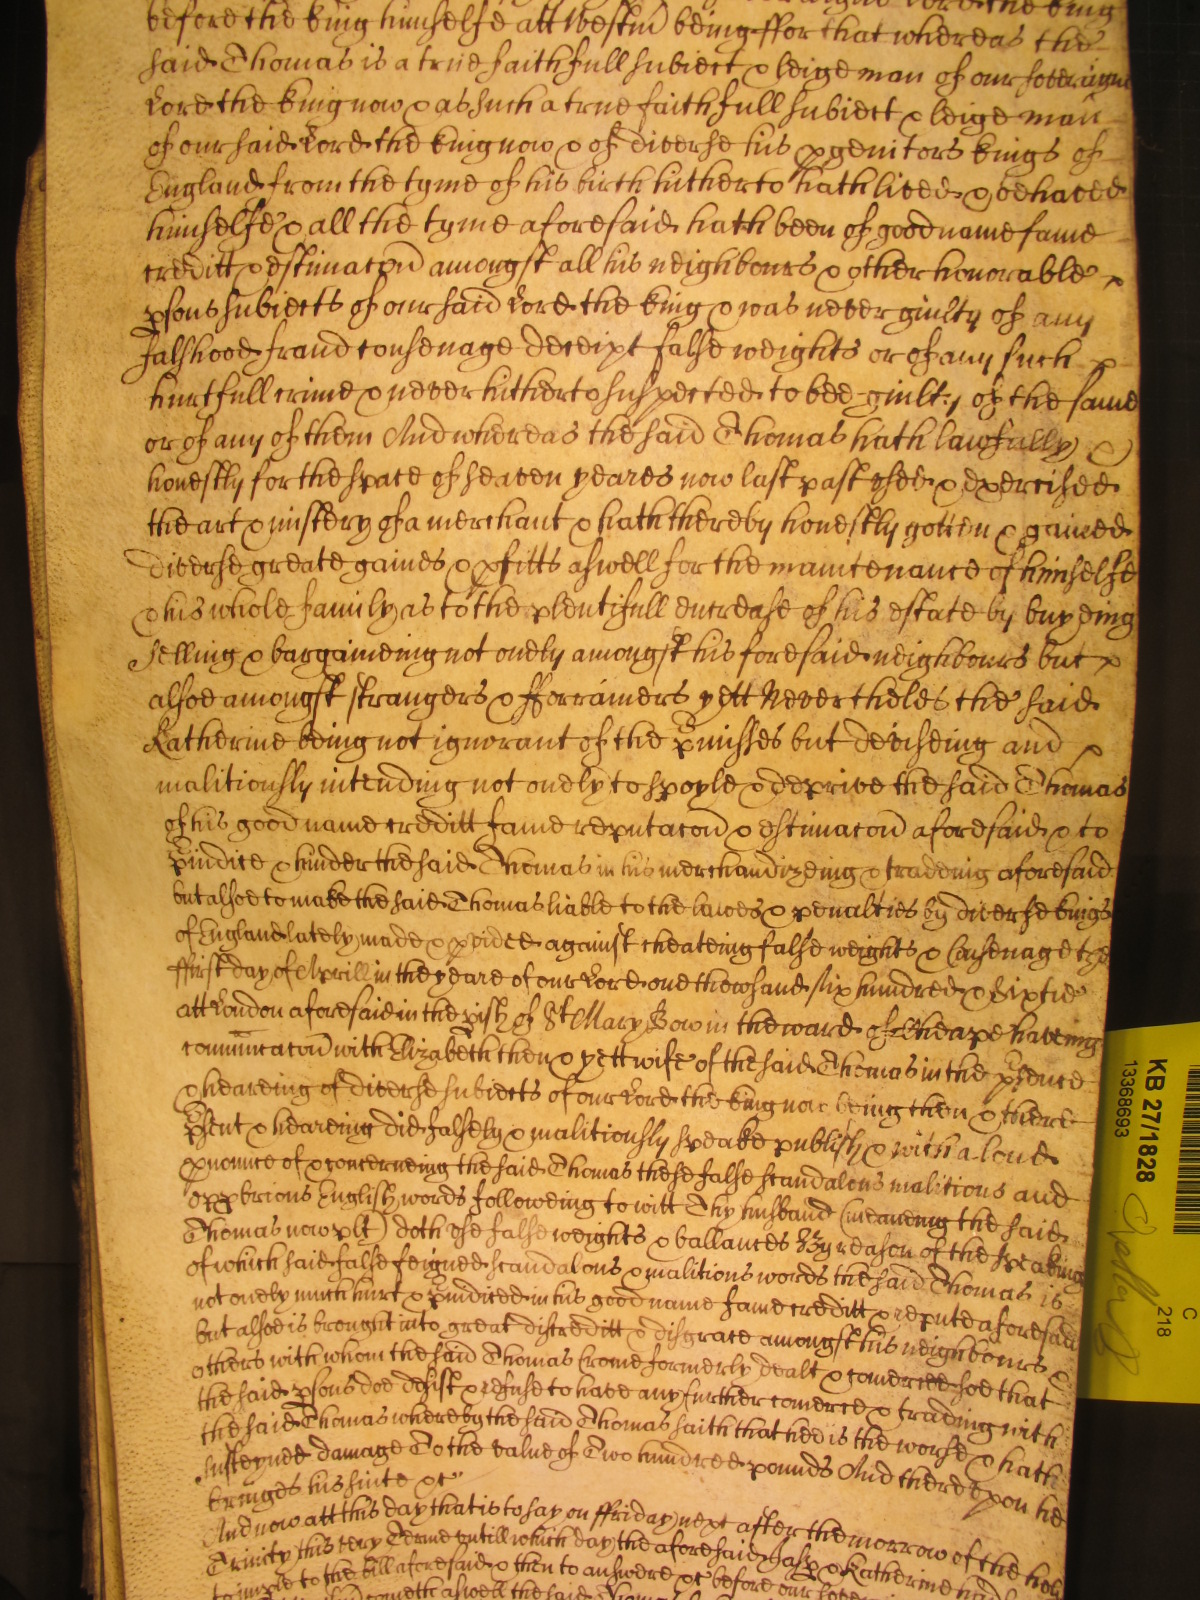 before the king himselfe att Westm̄ being ffor that whereas the
said Thomas is a true faithfull subiect & leige man of our soveraigne
Lord the king now & as such a true faithfull subiect & leige man
of our said Lord the king now & of diverse his ꝓgenitors kings of
England from the tyme of his birth hitherto hath lived & behaved
himselfe & all the tyme aforesaid hath been of good name fame
creditt & estimacōn amongst all his neighbours & other honorable
ꝑsons subiects of our said Lord the king & was never guilty of any
falshood fraud cousenage deceipt false weights or of any such
hurtfull crime & never hitherto suspected to bee guilty of the same
or of any of them And whereas the said Thomas hath lawfully &
honestly for the space of seaven yeares now last past vsed & exercised
the art & mistery of a merchant & hath thereby honestly gotten & gained
diverse greate gaines & ꝓfitts aswell for the maintenance of himselfe
& his whole family as to the plentifull encrease of his estate by buyeing
selling & bargaineing not onely amongst his foresaid neighbours but
alsoe amongst strangers & fforrainers yett Neverthelẽs the said
Katherine being not ignorant of the p̄misses but deviseing and
malitiously intending not onely to spoyle & deprive the said Thomas
of his good name creditt fame reputacōn & estimacōn aforesaid & to
p̄iudice & hinder the said Thomas in his merchandizeing & tradeing aforesaid
but alsoe to make the said Thomas liable to the lawes & penalties by diverse kings
of England lately made & ꝓvided against cheateing false weights & Cosenage the
ffirst day of Aprill in the yeare of our Lord one thowsand six hundred & sixtie
att London aforesaid in the ꝑish of St Mary Bow in the ward of Cheape haveing
com̄unicacōn with Elizabeth then & yett wife of the said Thomas in the p̄sence
& heareing of diverse subiects of our Lord the king now being then & there
p̄sent & heareing did falsely & malitiously speake publish & with a loud
ꝓnounce of & concerneing the said Thomas these false scandalous malitious and
opprobrious English words following to witt Thy husband (meaneing the said
Thomas now plt) doth vse false weights & ballances By reason of the speaking
of which said false feigned scandalous & malitious words the said Thomas is
not onely much hurt & p̄iudiced in his good name fame creditt & repute aforesaid
but alsoe is brought into great discreditt & disgrace amongst his neighbours &
others with whom the said Thomas formerly dealt & comerced soe that
the said ꝑsons doe desist & refuse to have any further comerce & trading with
the said Thomas whereby the said Thomas saith that hee is the worse & hath
susteyned damage To the value of Two hundred pounds And thereupon he
bringes his suite &c
And now att this day that is to say on ffriday next after the morrow of the holy
Trinity this very Terme untill which day the aforesaid & Katherine had
to imple to the bill aforesaid & then to answere &c before our
cometh aswell the said
KB 27/1828
13368693
C
218